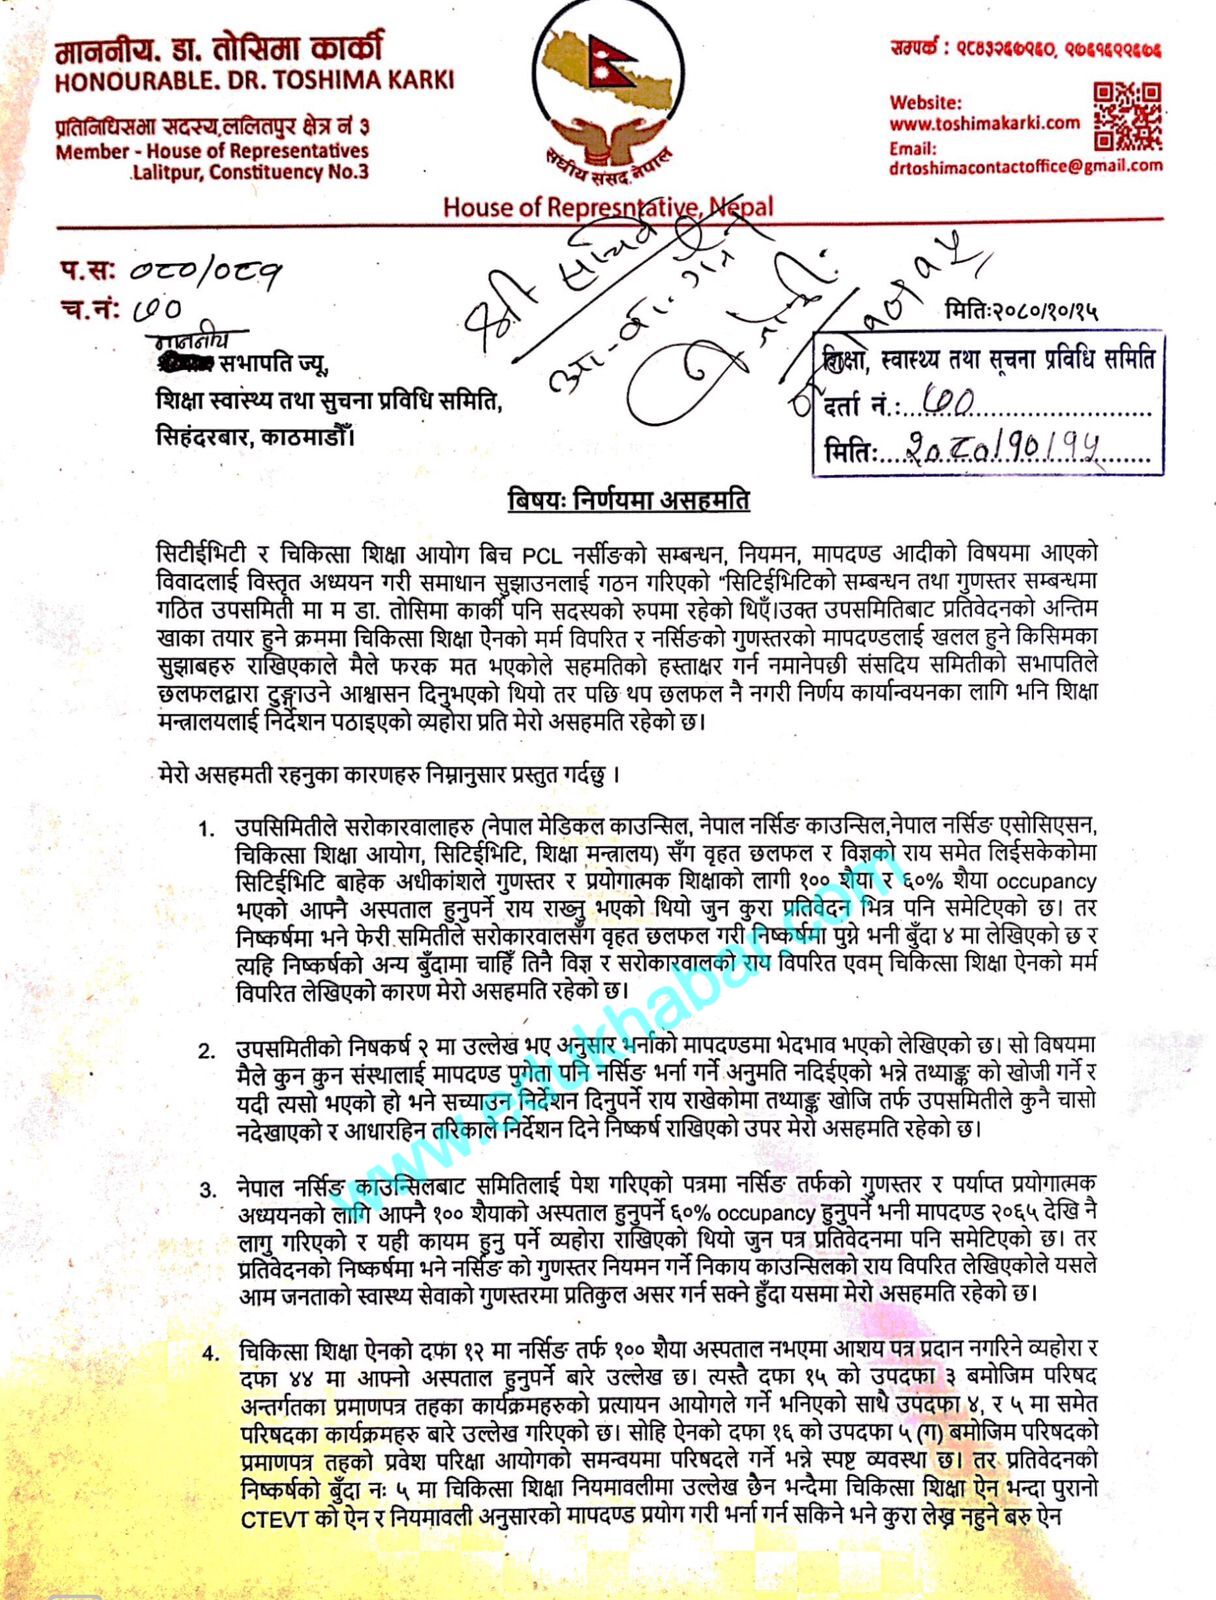 माननीय. डा. तोसिमा कार्की
HONOURABLE. DR. TOSHIMA KARKI
प्रतिनिधिसभा सदस्य,ललितपुर क्षेत्र नं ३
Member - House of Representatives
Lalitpur, Constituency No.3
संघीय संसद, नेपाल
House of Represntative, Nepal
सम्पर्क : ९८४३२६७१६०, ९७६१६२२६७६
Website:
www.toshimakarki.com
Email:
drtoshimacontactoffice@gmail.com
प.स: ०८०/०८१
च.नं: ७०
श्री सचिव
मिति:२०८०/१०/१५
माननीय
सभापति ज्यू,
शिक्षा स्वास्थ्य तथा सुचना प्रविधि समिति,
सिहंदरबार, काठमाडौँ।
शिक्षा, स्वास्थ्य तथा सूचना प्रविधि समिति
दर्ता नं.:....७०....
मिति:....२०८०/१०/१५....
बिषयः निर्णयमा असहमति
सिटीईभिटी र चिकित्सा शिक्षा आयोग बिच PCL नर्सीङको सम्बन्धन, नियमन, मापदण्ड आदीको विषयमा आएको
विवादलाई विस्तृत अध्ययन गरी समाधान सुझाउनलाई गठन गरिएको “सिटिईभिटिको सम्बन्धन तथा गुणस्तर सम्बन्धमा
गठित उपसमिती मा म डा. तोसिमा कार्की पनि सदस्यको रुपमा रहेको थिएँ।उक्त उपसमितिबाट प्रतिवेदनको अन्तिम
खाका तयार हुने क्रममा चिकित्सा शिक्षा ऐनको मर्म विपरित र नर्सिङको गुणस्तरको मापदण्डलाई खलल हुने किसिमका
सुझाबहरु राखिएकाले मैले फरक मत भएकोले सहमतिको हस्ताक्षर गर्न नमानेपछी संसदिय समितीको सभापतिले
छलफलद्वारा टुङ्गाउने आश्वासन दिनुभएको थियो तर पछि थप छलफल नै नगरी निर्णय कार्यान्वयनका लागि भनि शिक्षा
मन्त्रालयलाई निर्देशन पठाइएको व्यहोरा प्रति मेरो असहमति रहेको छ।
मेरो असहमती रहनुका कारणहरु निम्नानुसार प्रस्तुत गर्दछु ।
1. उपसिमितीले सरोकारवालाहरु (नेपाल मेडिकल काउन्सिल, नेपाल नर्सिङ काउन्सिल,नेपाल नर्सिङ एसोसिएसन,
चिकित्सा शिक्षा आयोग, सिटिईभिटि, शिक्षा मन्त्रालय) सँग वृहत छलफल र विज्ञको राय समेत लिईसकेकोमा
सिटिईभिटि बाहेक अधीकांशले गुणस्तर र प्रयोगात्मक शिक्षाको लागी १०० शैया र ६०% शैया occupancy
भएको आफ्नै अस्पताल हुनुपर्ने राय राख्नु भएको थियो जुन कुरा प्रतिवेदन भित्र पनि समेटिएको छ। तर
निष्कर्षमा भने फेरी समितीले सरोकारवालसँग वृहत छलफल गरी निष्कर्षमा पुग्ने भनी बुँदा ४ मा लेखिएको छ र
त्यहि निष्कर्षको अन्य बुँदामा चाहिँ तिनै विज्ञ र सरोकारवालको राय विपरित एवम् चिकित्सा शिक्षा ऐनको मर्म
विपरित लेखिएको कारण मेरो असहमति रहेको छ।
2. उपसमितीको निषकर्ष २ मा उल्लेख भए अनुसार भर्नाको मापदण्डमा भेदभाव भएको लेखिएको छ। सो विषयमा
मैले कुन कुन संस्थालाई मापदण्ड पुगेता पनि नर्सिङ भर्ना गर्ने अनुमति नदिईएको भन्ने तथ्याङ्क को खोजी गर्ने र
यदी त्यसो भएको हो भने सच्याउन निर्देशन दिनुपर्ने राय राखेकोमा तथ्याङ्क खोजि तर्फ उपसमितीले कुनै चासो
नदेखाएको र आधारहिन तरिकाले निर्देशन दिने निष्कर्ष राखिएको उपर मेरो असहमति रहेको छ।
3. नेपाल नर्सिङ काउन्सिलबाट समितिलाई पेश गरिएको पत्रमा नर्सिङ तर्फको गुणस्तर र पर्याप्त प्रयोगात्मक
अध्ययनको लागि आफ्नै १०० शैयाको अस्पताल हुनुपर्ने ६०% occupancy हुनुपर्ने भनी मापदण्ड २०६५ देखि नै
लागु गरिएको र यही कायम हुनु पर्ने व्यहोरा राखिएको थियो जुन पत्र प्रतिवेदनमा पनि समेटिएको छ। तर
प्रतिवेदनको निष्कर्षमा भने नर्सिङ को गुणस्तर नियमन गर्ने निकाय काउन्सिलको राय विपरित लेखिएकोले यसले
आम जनताको स्वास्थ्य सेवाको गुणस्तरमा प्रतिकुल असर गर्न सक्ने हुँदा यसमा मेरो असहमति रहेको छ।
4. चिकित्सा शिक्षा ऐनको दफा १२ मा नर्सिङ तर्फ १०० शैया अस्पताल नभएमा आशय पत्र प्रदान नगरिने व्यहोरा र
दफा ४४ मा आफ्नो अस्पताल हुनुपर्ने बारे उल्लेख छ। त्यस्तै दफा १५ को उपदफा ३ बमोजिम परिषद
अन्तर्गतका प्रमाणपत्र तहका कार्यक्रमहरुको प्रत्यायन आयोगले गर्ने भनिएको साथै उपदफा ४, र ५ मा समेत
परिषदका कार्यक्रमहरु बारे उल्लेख गरिएको छ। सोहि ऐनको दफा १६ को उपदफा ५ (ग) बमोजिम परिषदको
प्रमाणपत्र तहको प्रवेश परिक्षा आयोगको समन्वयमा परिषदले गर्ने भन्ने स्पष्ट व्यवस्था छ। तर प्रतिवेदनको
निष्कर्षको बुँदा नः ५ मा चिकित्सा शिक्षा नियमावलीमा उल्लेख छैन भन्दैमा चिकित्सा शिक्षा ऐन भन्दा पुरानो
CTEVT को ऐन र नियमावली अनुसारको मापदण्ड प्रयोग गरी भर्ना गर्न सकिने भने कुरा लेख्न नहुने बरु ऐन
www.edukhabar.com